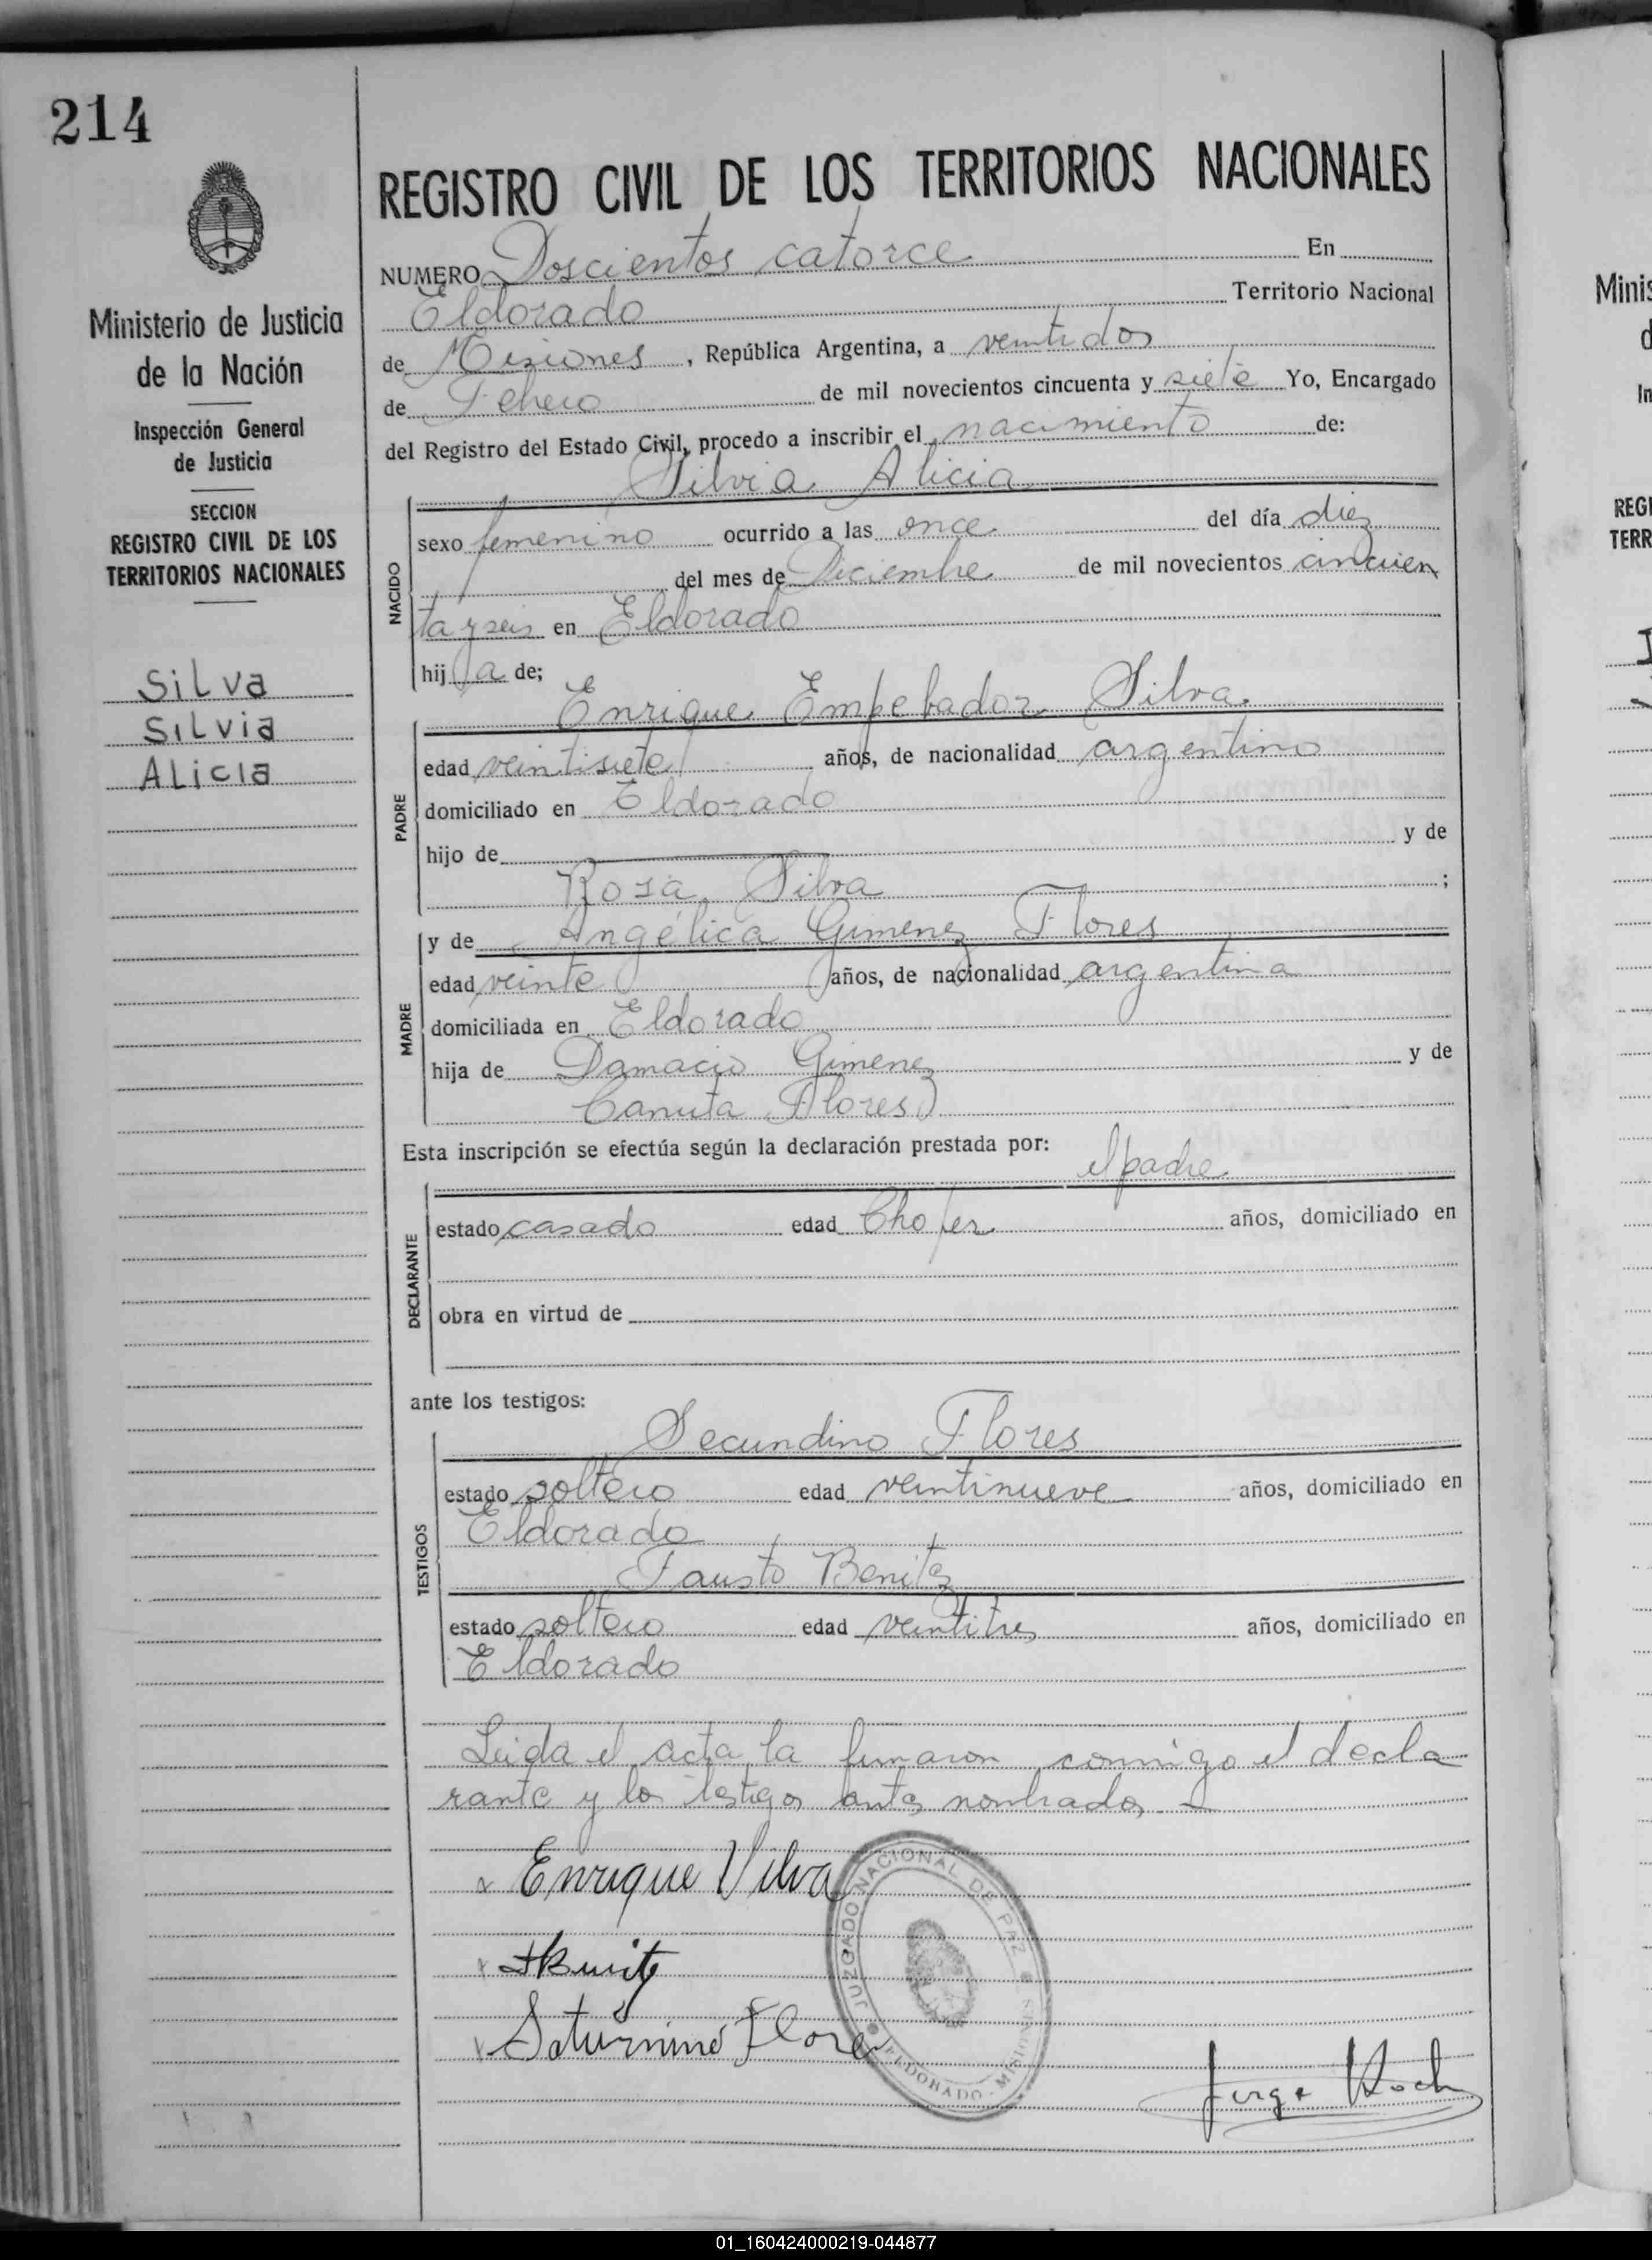 214
Ministerio de Justicia
de la Nación
Inspección General
de Justicia
SECCION
REGISTRO CIVIL DE LOS
TERRITORIOS NACIONALES
Silva
Silvia
Alicia
REGISTRO CIVIL DE LOS TERRITORIOS NACIONALES
NUMERO Doscientos catorce En
Eldorado Territorio Nacional
de Misiones, República Argentina, a veintidos
de Febrero de mil novecientos cincuenta y siete Yo, Encargado
del Registro del Estado Civil, procedo a inscribir el nacimiento de:
Silvia Alicia
NACIDO
sexo femenino ocurrido a las once del día diez
del mes de Diciembre de mil novecientos cincuen
ta y seis en Eldorado
hij a de;
Enrique Silva
PADRE
edad veintisiete años, de nacionalidad argentino
domiciliado en Eldorado
hijo de y de
Rosa Silva ;
y de Angélica Gimenez Flores
MADRE
edad veinte años, de nacionalidad argentina
domiciliada en Eldorado
hija de Damacio Gimenez y de
Canuta Flores
Esta inscripción se efectúa según la declaración prestada por: el padre
DECLARANTE
estado casado edad Chofer años, domiciliado en
obra en virtud de
ante los testigos:
Secundino Flores
TESTIGOS
estado soltero edad veintinueve años, domiciliado en
Eldorado
Fausto Benitez
estado soltero edad veintitres años, domiciliado en
Eldorado
Leida el acta la firmaron conmigo el decla
rante y los testigos antes nombrados. -
Enrique Silva
Saturnino Flores
JUZGADO NACIONAL DE PAZ
ELDORADO - MISIONES
Jorge Koch
Minis
d
In
REGI
TERR
01_160424000219-044877